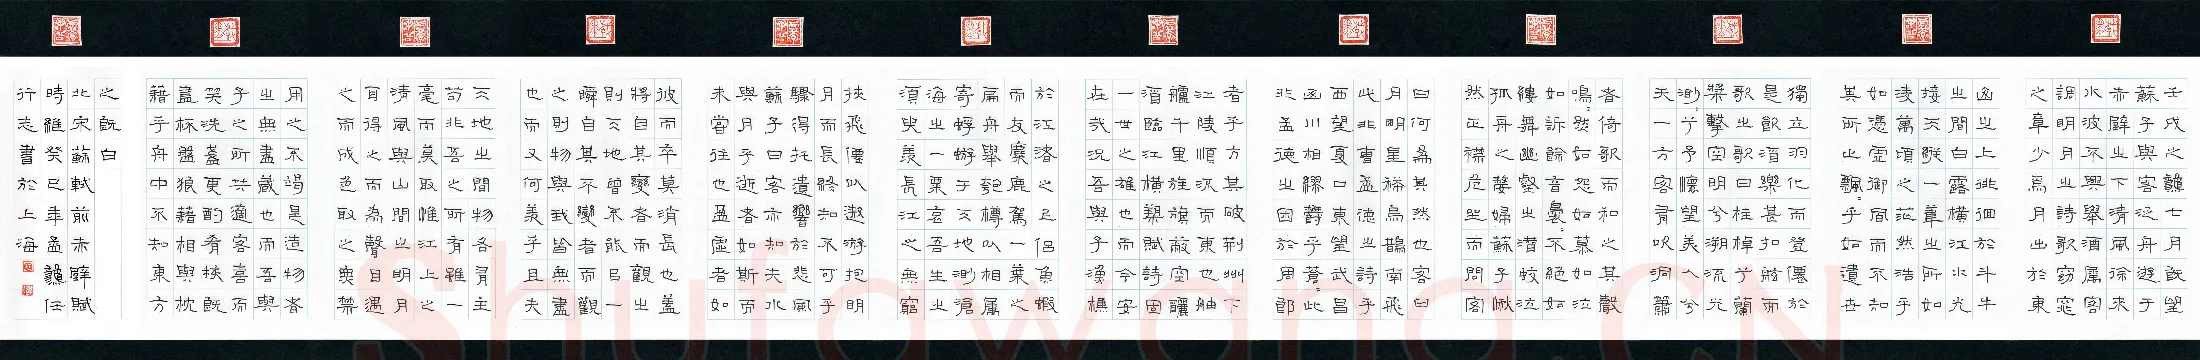 壬戌之龝七月既望
蘇子與客泛舟遊于
赤壁之下清風徐來
水波不興舉酒屬客
誦明月之詩歌窈窕
之章少焉月出於東
山之上徘徊於斗牛
之間白露橫江水光
接天縱一葦之所如
淩萬頃之茫然浩〻乎
如憑虛御風而不知
其所止飄〻乎如遺世
獨立羽化而登僊於
是飲酒樂甚扣舷而
歌之歌曰桂棹兮蘭
槳擊空明兮溯流光
渺〻兮予懷望美人兮
天一方客有吹洞簫
者倚歌而和之其聲
嗚〻然如怨如慕如泣
如訴餘音裊〻不絕如
縷舞幽壑之潛蛟泣
孤舟之嫠婦蘇子愀
然正襟危坐而問客
曰何為其然也客曰
月明星稀烏鵲南飛
此非曹孟德之詩乎
西望夏口東望武昌
山川相繆鬱乎蒼〻此
非孟德之困於周郎
者乎方其破荊州下
江陵順流而東也舳
艫千里旌旗蔽空釃
酒臨江橫槊賦詩固
一世之雄也而今安
在哉況吾與子漁樵
於江渚之上侶魚蝦
而友麋鹿駕一葉之
扁舟舉匏樽以相屬
寄蜉蝣于天地渺滄
海之一粟哀吾生之
須臾羨長江之無窮
挾飛僊以遨游抱明
月而長終知不可乎
驟得托遺響於悲風
蘇子曰客亦知夫水
與月乎逝者如斯而
未嘗往也盈虛者如
彼而卒莫消長也蓋
將自其變者而觀之
則天地曾不能以一
瞬自其不變者而觀
之則物與我皆無盡
也而又何羨乎且夫
天地之間物各有主
苟非吾之所有雖一
毫而莫取惟江上之
清風與山間之明月
耳得之而為聲目遇
之而成色取之無禁
用之不竭是造物者
之無盡藏也而吾與
子之所共適客喜而
笑洗盞更酌肴核既
盡杯盤狼藉相與枕
籍乎舟中不知東方
之既白
北宋蘇軾前赤壁賦
時維癸巳年孟龝任
行志書於上海
Shufawang.CN